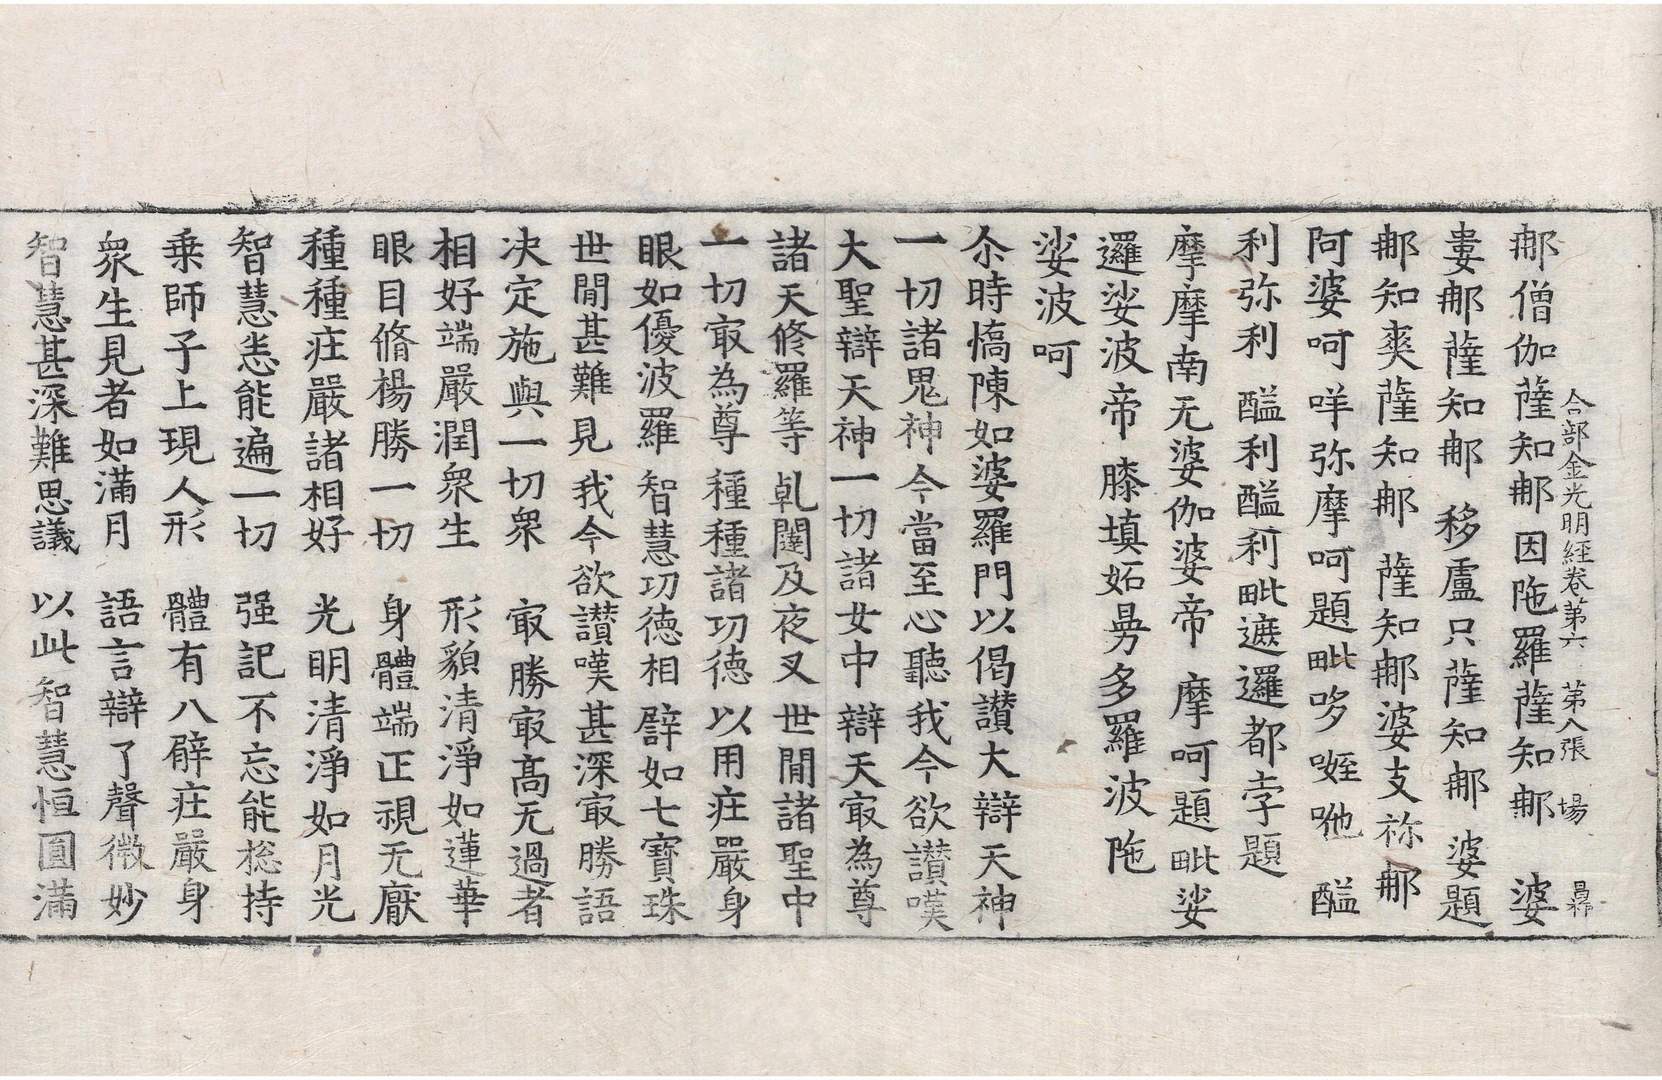 合部金光明經卷第六 第八張 場
𨚗僧伽薩知𨚗因陁羅薩知𨚗 婆
婁𨚗薩知𨚗 移盧只薩知𨚗 婆題
𨚗知爽薩知𨚗 薩知𨚗婆支祢𨚗
阿婆呵咩弥摩呵題毗哆𠸪吔 醯
利弥利 醯利醯利毗遮邏都孛題
摩摩南无婆伽婆帝 摩呵題毗娑
邏娑波帝膝填妬㬰多羅波陁
娑波呵
尒時憍陳如婆羅門以偈讚大辯天神
一切諸鬼神 今當至心聽 我今欲讚嘆
大聖辯天神 一切諸女中 辯天㝡為尊
諸天修羅等 乹闥及夜叉 世間諸聖中
一切㝡為尊 種種諸功德 以用庄嚴身
眼如優波羅 智慧功德相 辟如七寶珠
世間甚難見 我今欲讃嘆 甚深㝡勝語
决定施與一切衆 㝡勝㝡髙无過者
相好端嚴潤衆生 形貌清淨如蓮華
眼目脩楊勝一切 身體端正視无厭
種種庄嚴諸相好 光明清淨如月光
智慧悉能遍一切 强記不忘能捴持
乗師子上現人形 體有八臂庄嚴身
衆生見者如滿月 語言辯了聲微妙
智慧甚深難思議 以此智慧恒圓滿